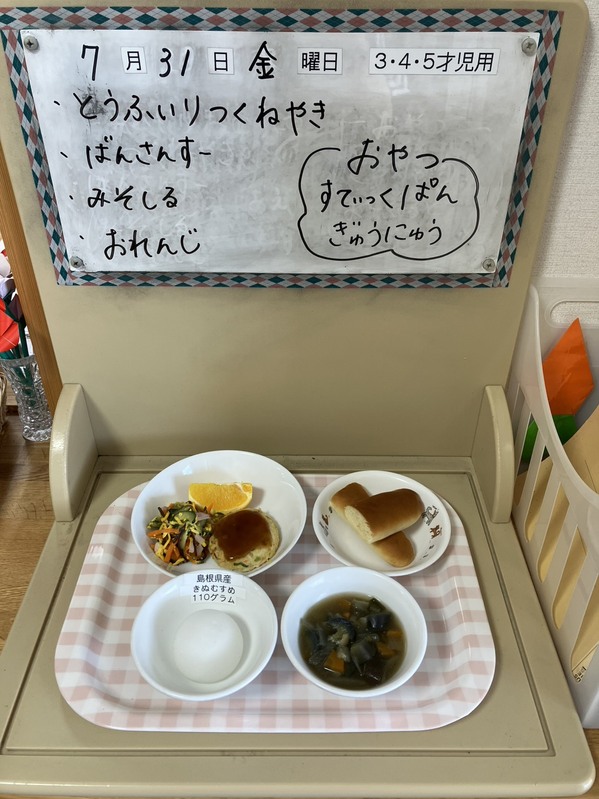 7月31日金曜日 3・4・5才児用
・とうふいりつくねやき
・ばんさんすー
・みそしる
・おれんじ
おやつ
すてぃっくぱん
ぎゅうにゅう
島根県産
きぬむすめ
110グラム